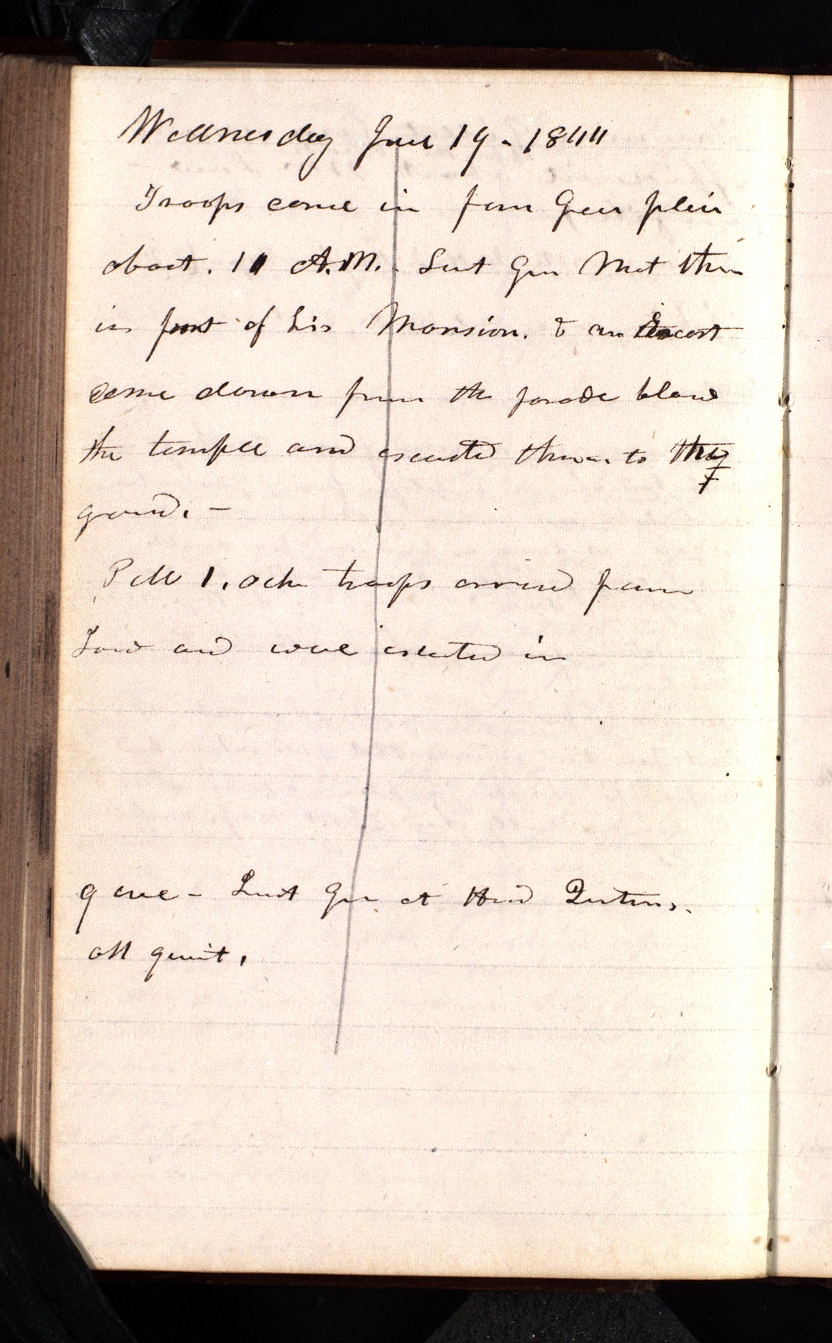 Wednesday June 19 - 1844
Troops come in from Green plein
about. 11 A.M. - Leut Gen Met them
in front of his Mansion. & an Escort
came down from the parade blow
the temple and escoted them to the
ground. -
P M 1. ock troops arrived from
Iowa and were escoted in
Leut Gen at Head Qurters.
all quiit.